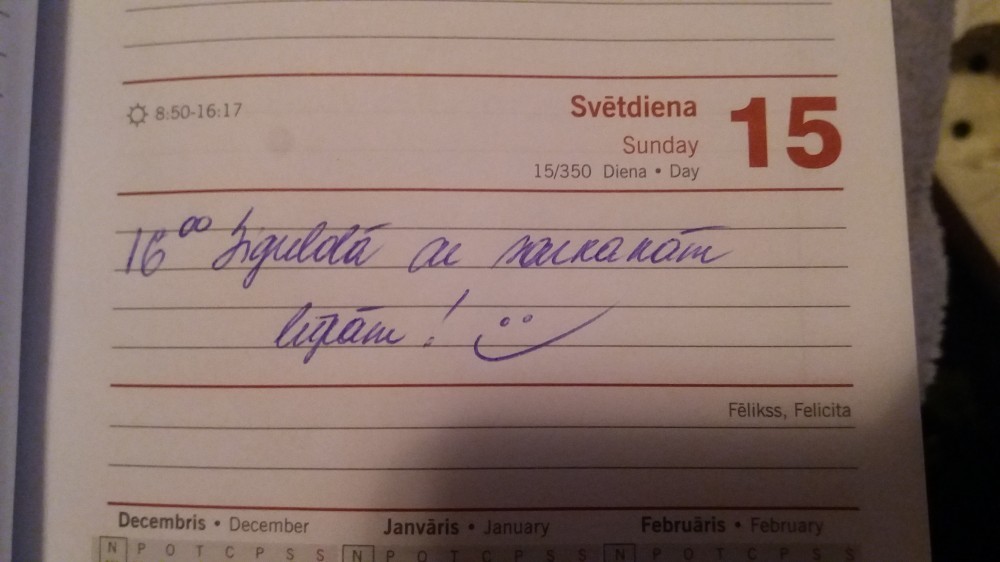 8:50-16:17
Svētdiena 15
Sunday
15/350 Diena • Day
16⁰⁰ Siguldā ar sarkanām
lūpām!
Fēlikss, Felicita
Decembris • December Janvāris • January Februāris • February
N P O T C P S S N P O T C P S S N P O T C P S S